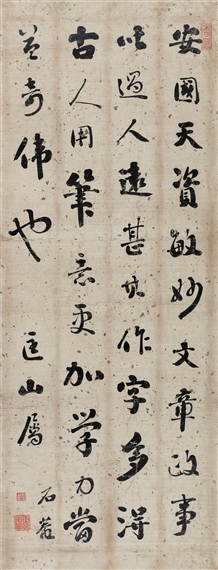 安國天資敏妙文章政事
皆過人遠甚其作字多得
古人用筆意更加学力當
益奇偉也 匡山屬
石菴